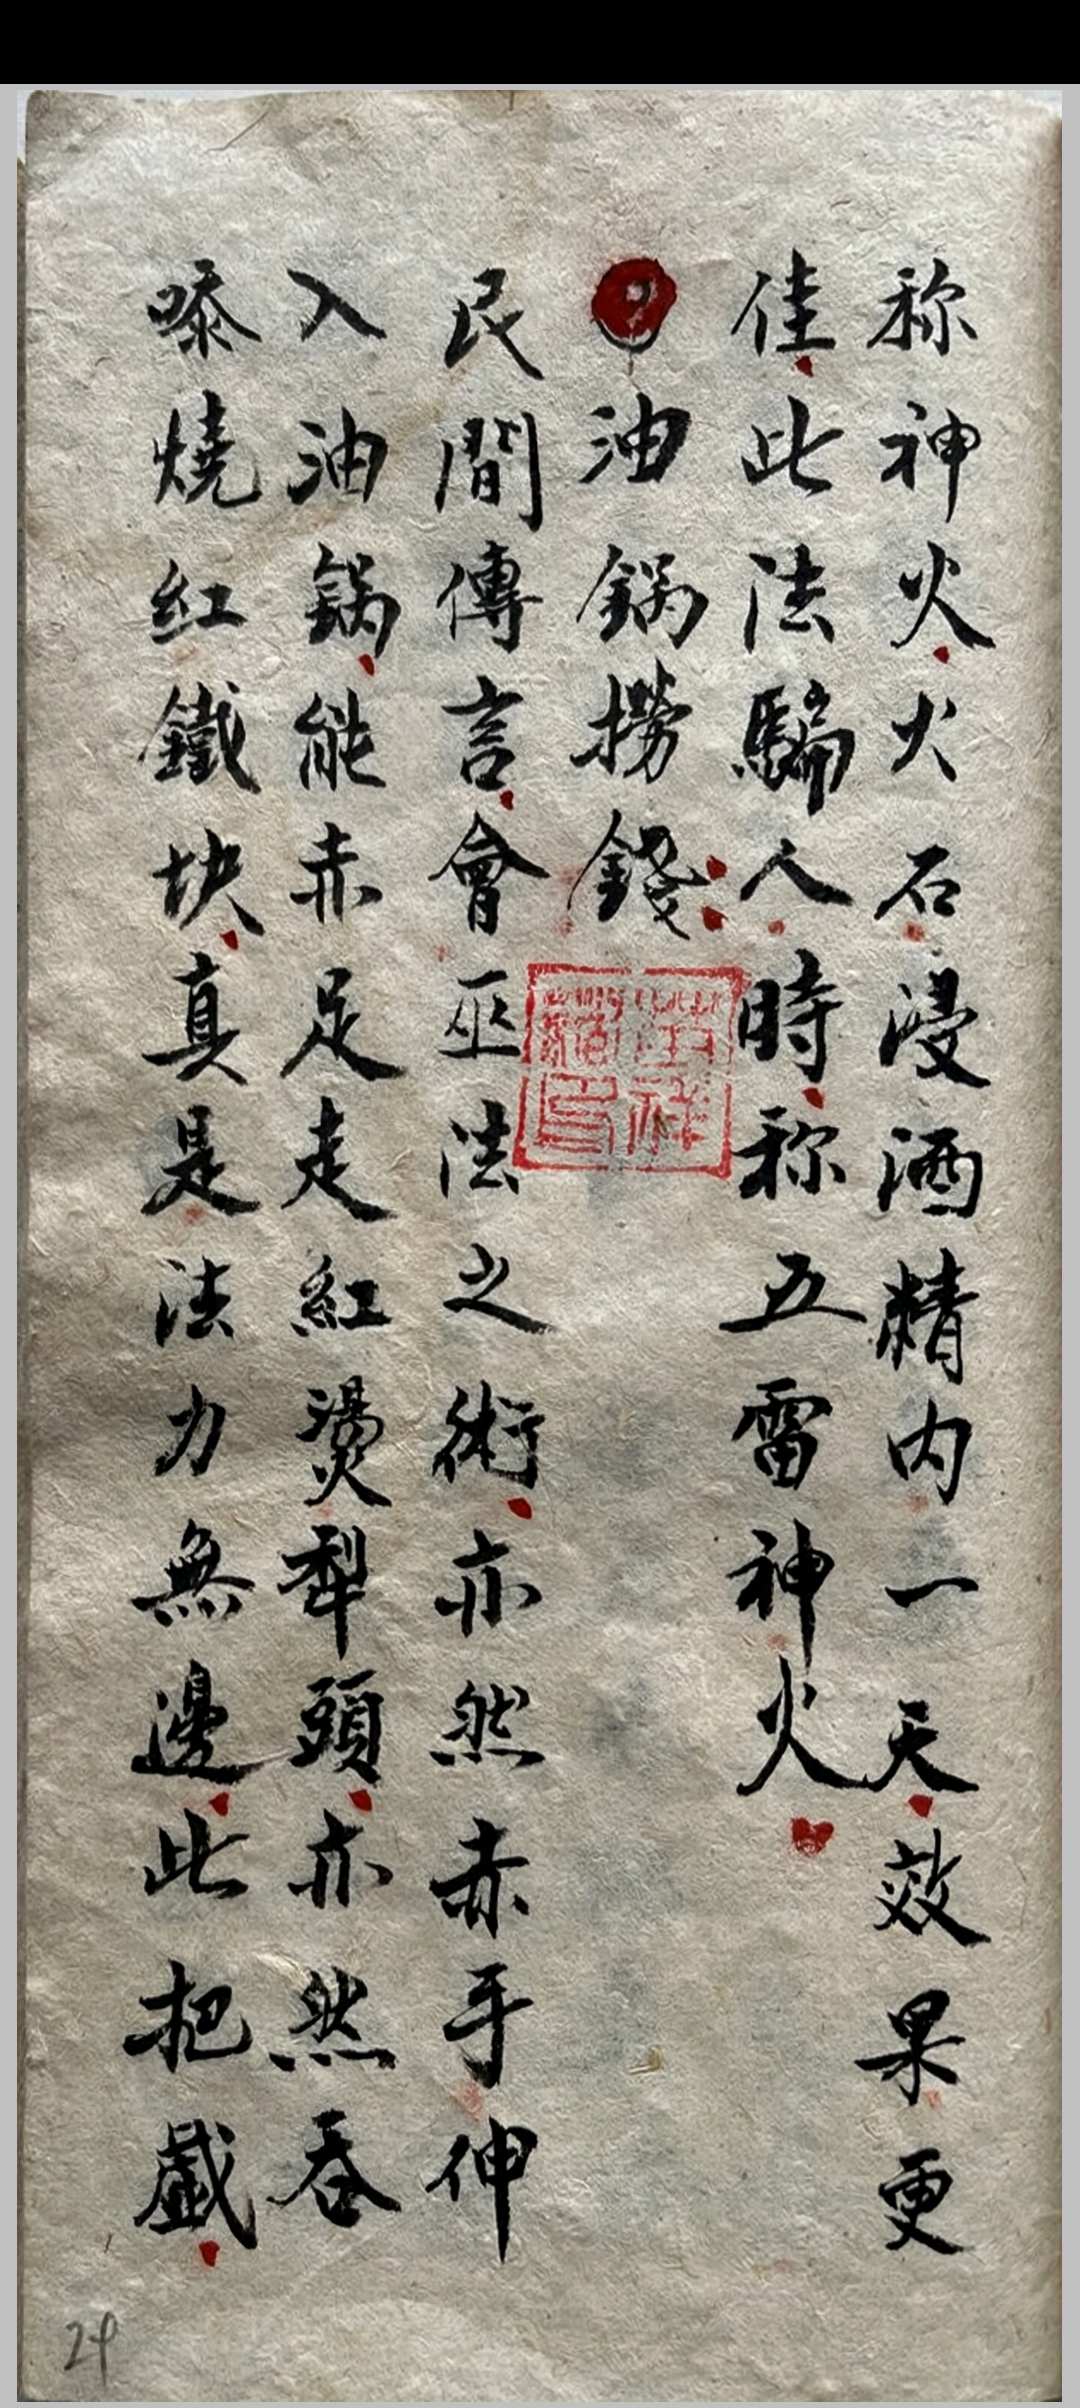 称神火火石浸酒精内一天效果更
佳此法騙人時称五雷神火
油鍋撈錢
民間傳言會巫法之術亦然赤手伸
入油鍋能赤足走紅燙犁頭亦然吞
嗦燒紅鐵块真是法力無邊此把戱
24